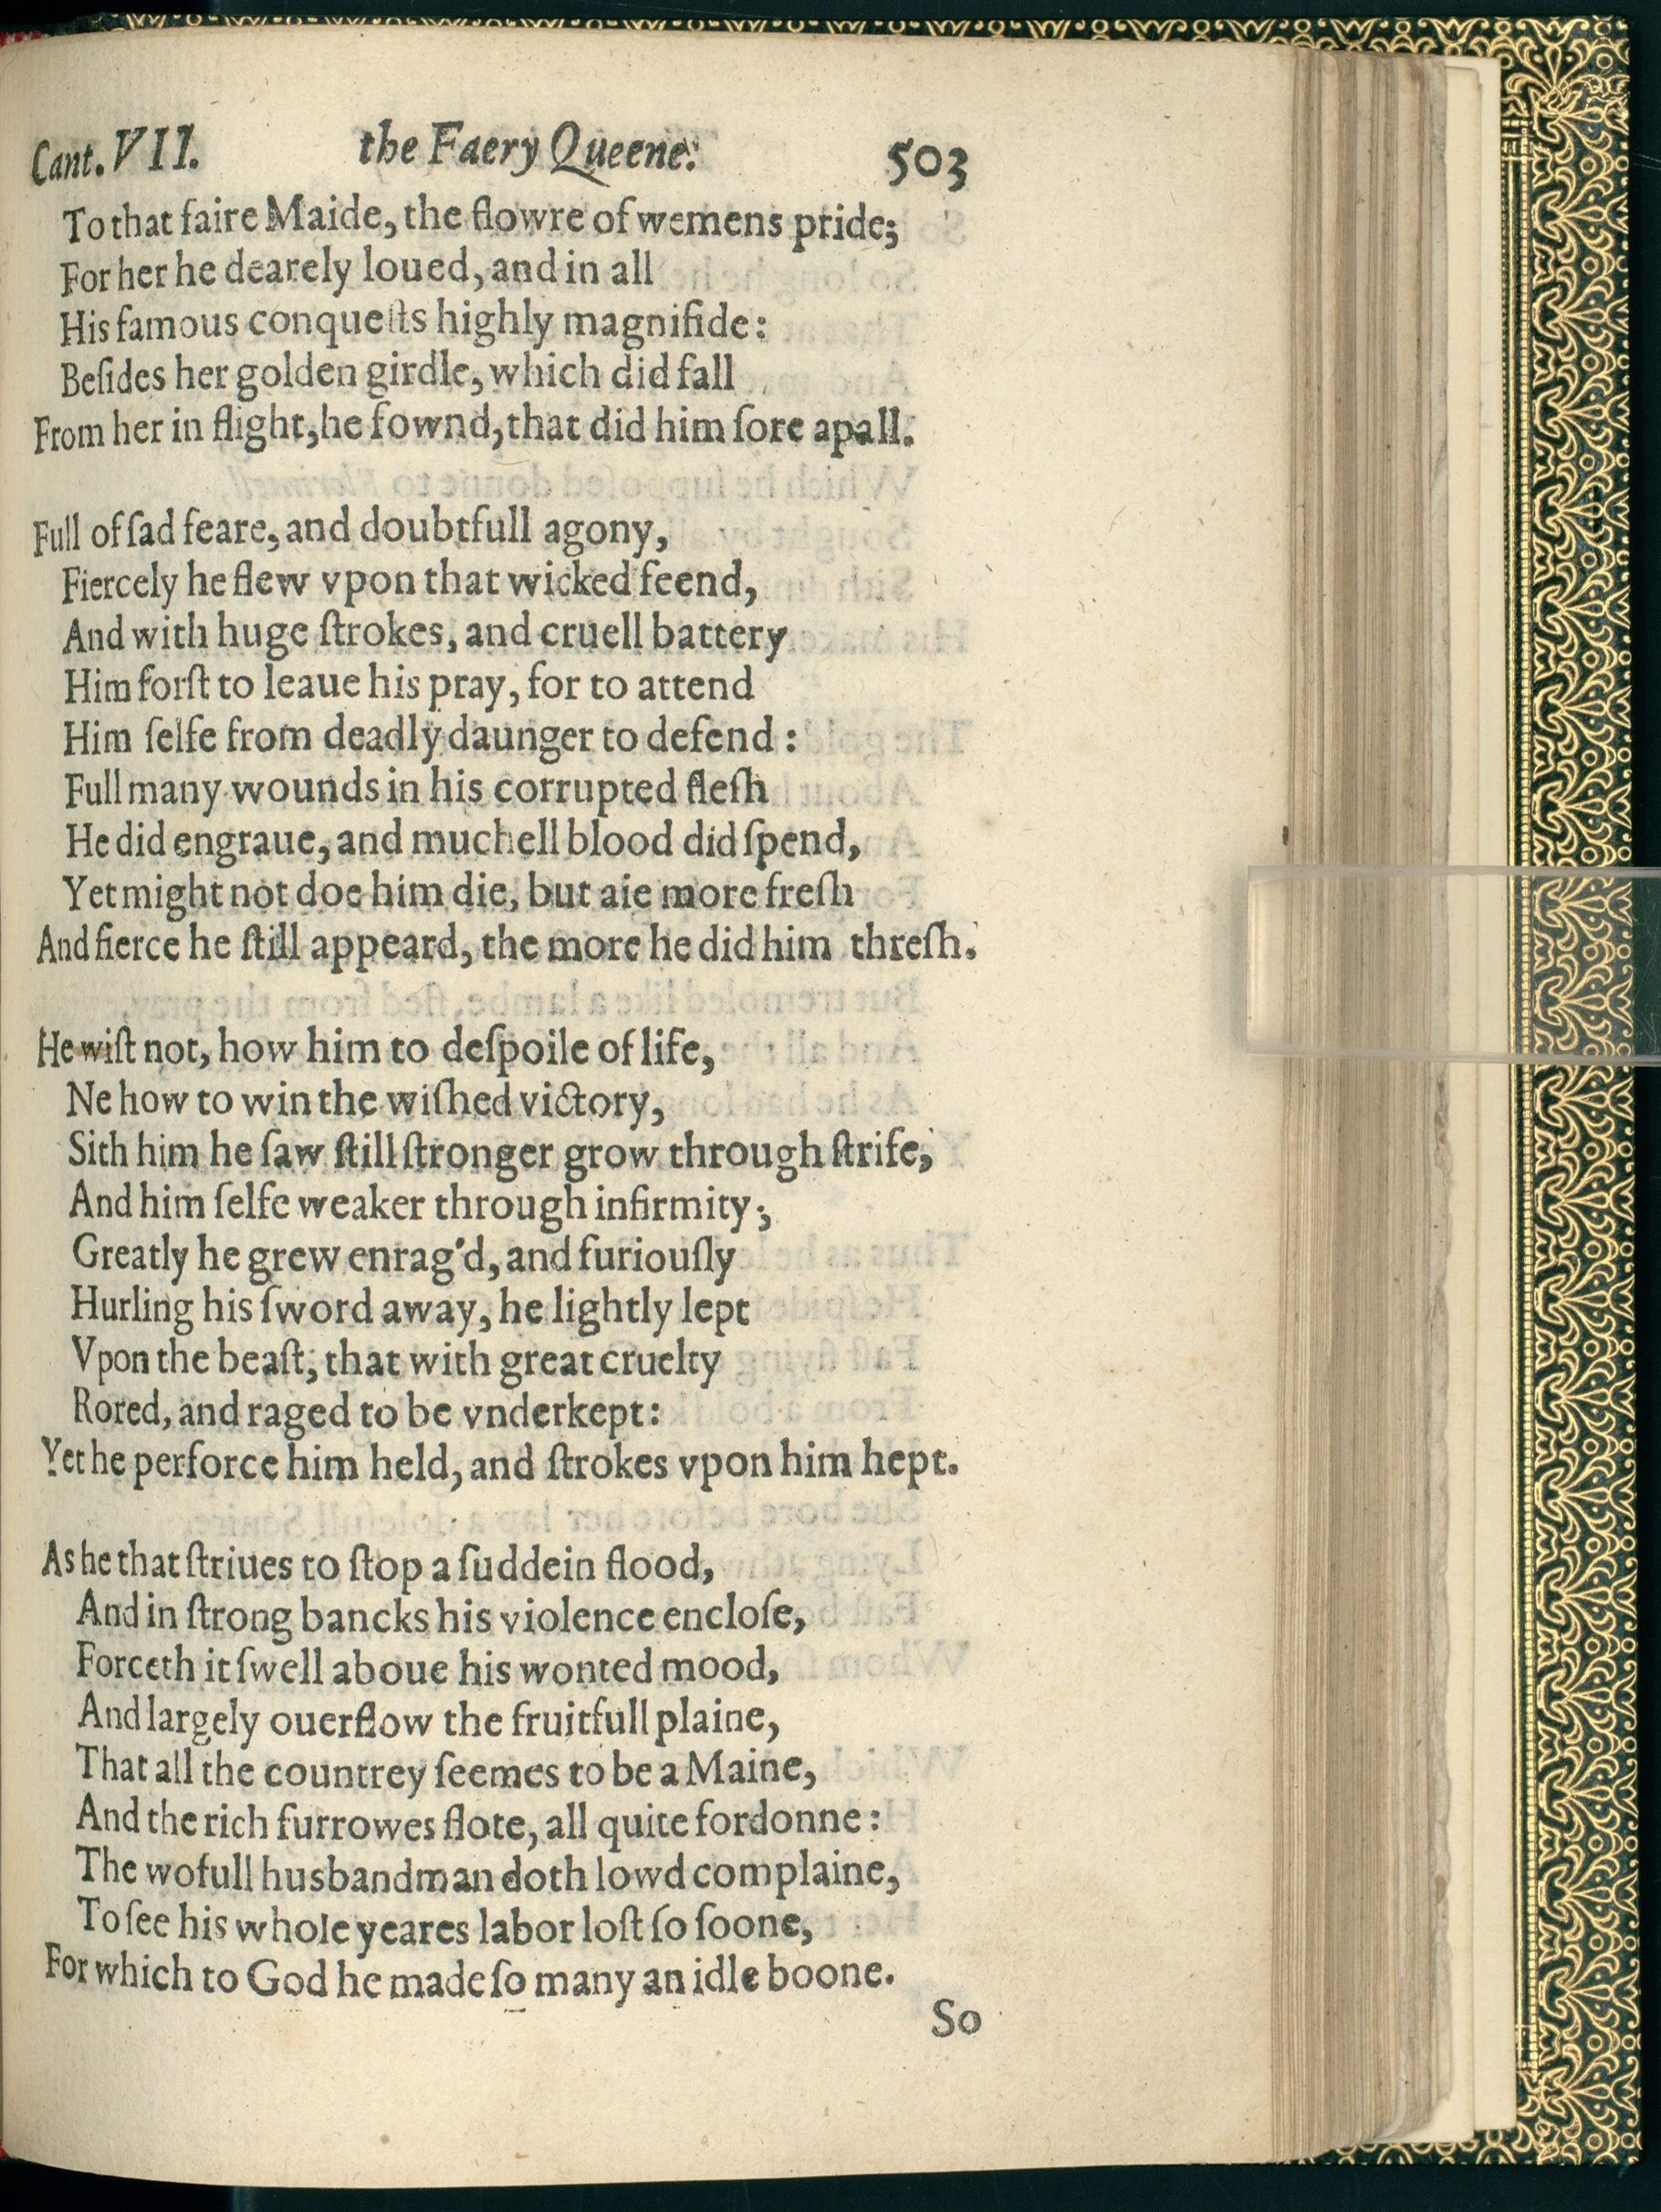 Cant. VII. the Faery Queene. 503
To that faire Maide, the flowre of wemens pride;
For her he dearely loued, and in all
His famous conqueſts highly magnifide:
Beſides her golden girdle, which did fall
From her in flight, he fownd, that did him ſore apall.
Full of ſad feare, and doubtfull agony,
Fiercely he flew vpon that wicked feend,
And with huge ſtrokes, and cruell battery
Him forſt to leaue his pray, for to attend
Him ſelfe from deadly daunger to defend:
Full many wounds in his corrupted fleſh
He did engraue, and muchell blood did ſpend,
Yet might not doe him die, but aie more freſh
And fierce he ſtill appeard, the more he did him threſh.
He wiſt not, how him to deſpoile of life,
Ne how to win the wiſhed victory,
Sith him he ſaw ſtill ſtronger grow through ſtrife,
And him ſelfe weaker through infirmity;
Greatly he grew enrag'd, and furiouſly
Hurling his ſword away, he lightly lept
Vpon the beaſt, that with great cruelty
Rored, and raged to be vnderkept:
Yet he perforce him held, and ſtrokes vpon him hept.
As he that ſtriues to ſtop a ſuddein flood,
And in ſtrong bancks his violence encloſe,
Forceth it ſwell aboue his wonted mood,
And largely ouerflow the fruitfull plaine,
That all the countrey ſeemes to be a Maine,
And the rich furrowes flote, all quite fordonne:
The wofull husbandman doth lowd complaine,
To ſee his whole yeares labor loſt ſo ſoone,
For which to God he made ſo many an idle boone.
So